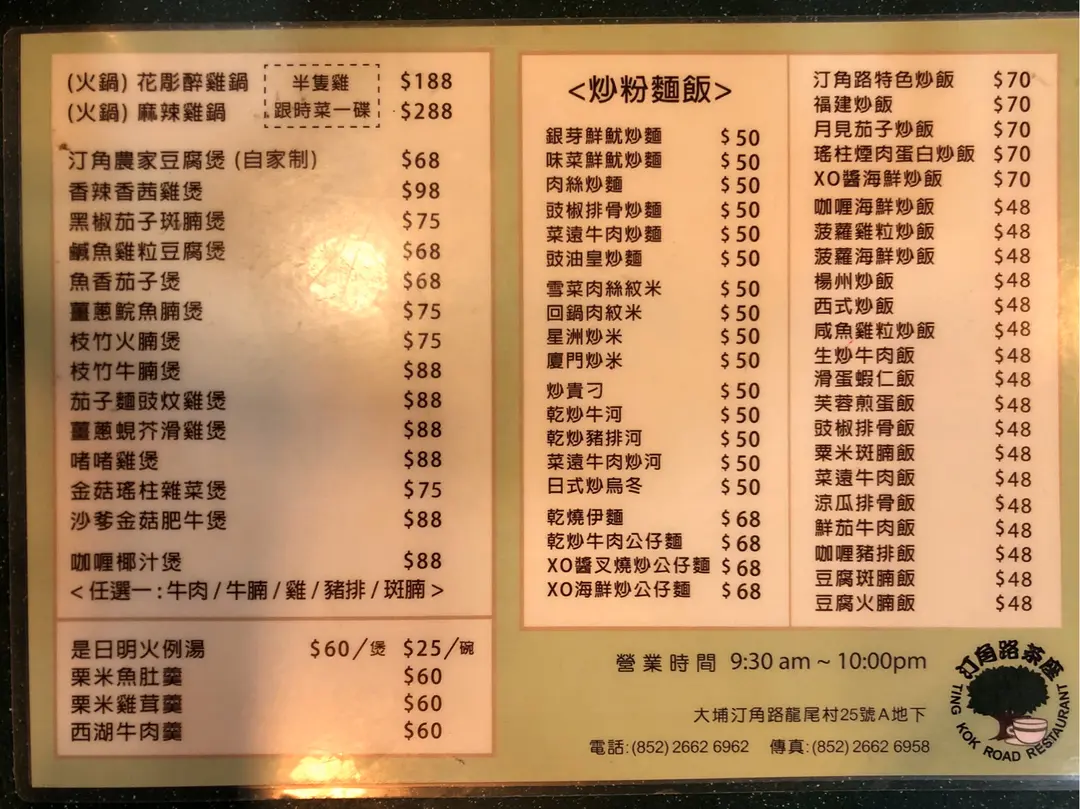 (火鍋) 花彫醉雞鍋 半隻雞 $188
(火鍋) 麻辣雞鍋 跟時菜一碟 $288
汀角農家豆腐煲 (自家制) $68
香辣香茜雞煲 $98
黑椒茄子斑腩煲 $75
鹹魚雞粒豆腐煲 $68
魚香茄子煲 $68
薑蔥鯇魚腩煲 $75
枝竹火腩煲 $75
枝竹牛腩煲 $88
茄子麵豉炆雞煲 $88
薑蔥蜆芥滑雞煲 $88
啫啫雞煲 $88
金菇瑤柱雜菜煲 $75
沙爹金菇肥牛煲 $88
咖喱椰汁煲 $88
<任選一:牛肉/牛腩/雞/豬排/斑腩>
是日明火例湯 $60/煲 $25/碗
栗米魚肚羹 $60
栗米雞茸羹 $60
西湖牛肉羹 $60
<炒粉麵飯>
銀芽鮮魷炒麵 $50
味菜鮮魷炒麵 $50
肉絲炒麵 $50
豉椒排骨炒麵 $50
菜遠牛肉炒麵 $50
豉油皇炒麵 $50
雪菜肉絲紋米 $50
回鍋肉紋米 $50
星洲炒米 $50
廈門炒米 $50
炒貴刁 $50
乾炒牛河 $50
乾炒豬排河 $50
菜遠牛肉炒河 $50
日式炒烏冬 $50
乾燒伊麵 $68
乾炒牛肉公仔麵 $68
XO醬叉燒炒公仔麵 $68
XO海鮮炒公仔麵 $68
汀角路特色炒飯 $70
福建炒飯 $70
月見茄子炒飯 $70
瑤柱煙肉蛋白炒飯 $70
XO醬海鮮炒飯 $70
咖喱海鮮炒飯 $48
菠蘿雞粒炒飯 $48
菠蘿海鮮炒飯 $48
楊州炒飯 $48
西式炒飯 $48
咸魚雞粒炒飯 $48
生炒牛肉飯 $48
滑蛋蝦仁飯 $48
芙蓉煎蛋飯 $48
豉椒排骨飯 $48
粟米斑腩飯 $48
菜遠牛肉飯 $48
涼瓜排骨飯 $48
鮮茄牛肉飯 $48
咖喱豬排飯 $48
豆腐斑腩飯 $48
豆腐火腩飯 $48
營業時間 9:30 am ~ 10:00pm
大埔汀角路龍尾村25號A地下
電話:(852) 2662 6962 傳真:(852) 2662 6958
汀角路茶座
TING KOK ROAD RESTAURANT